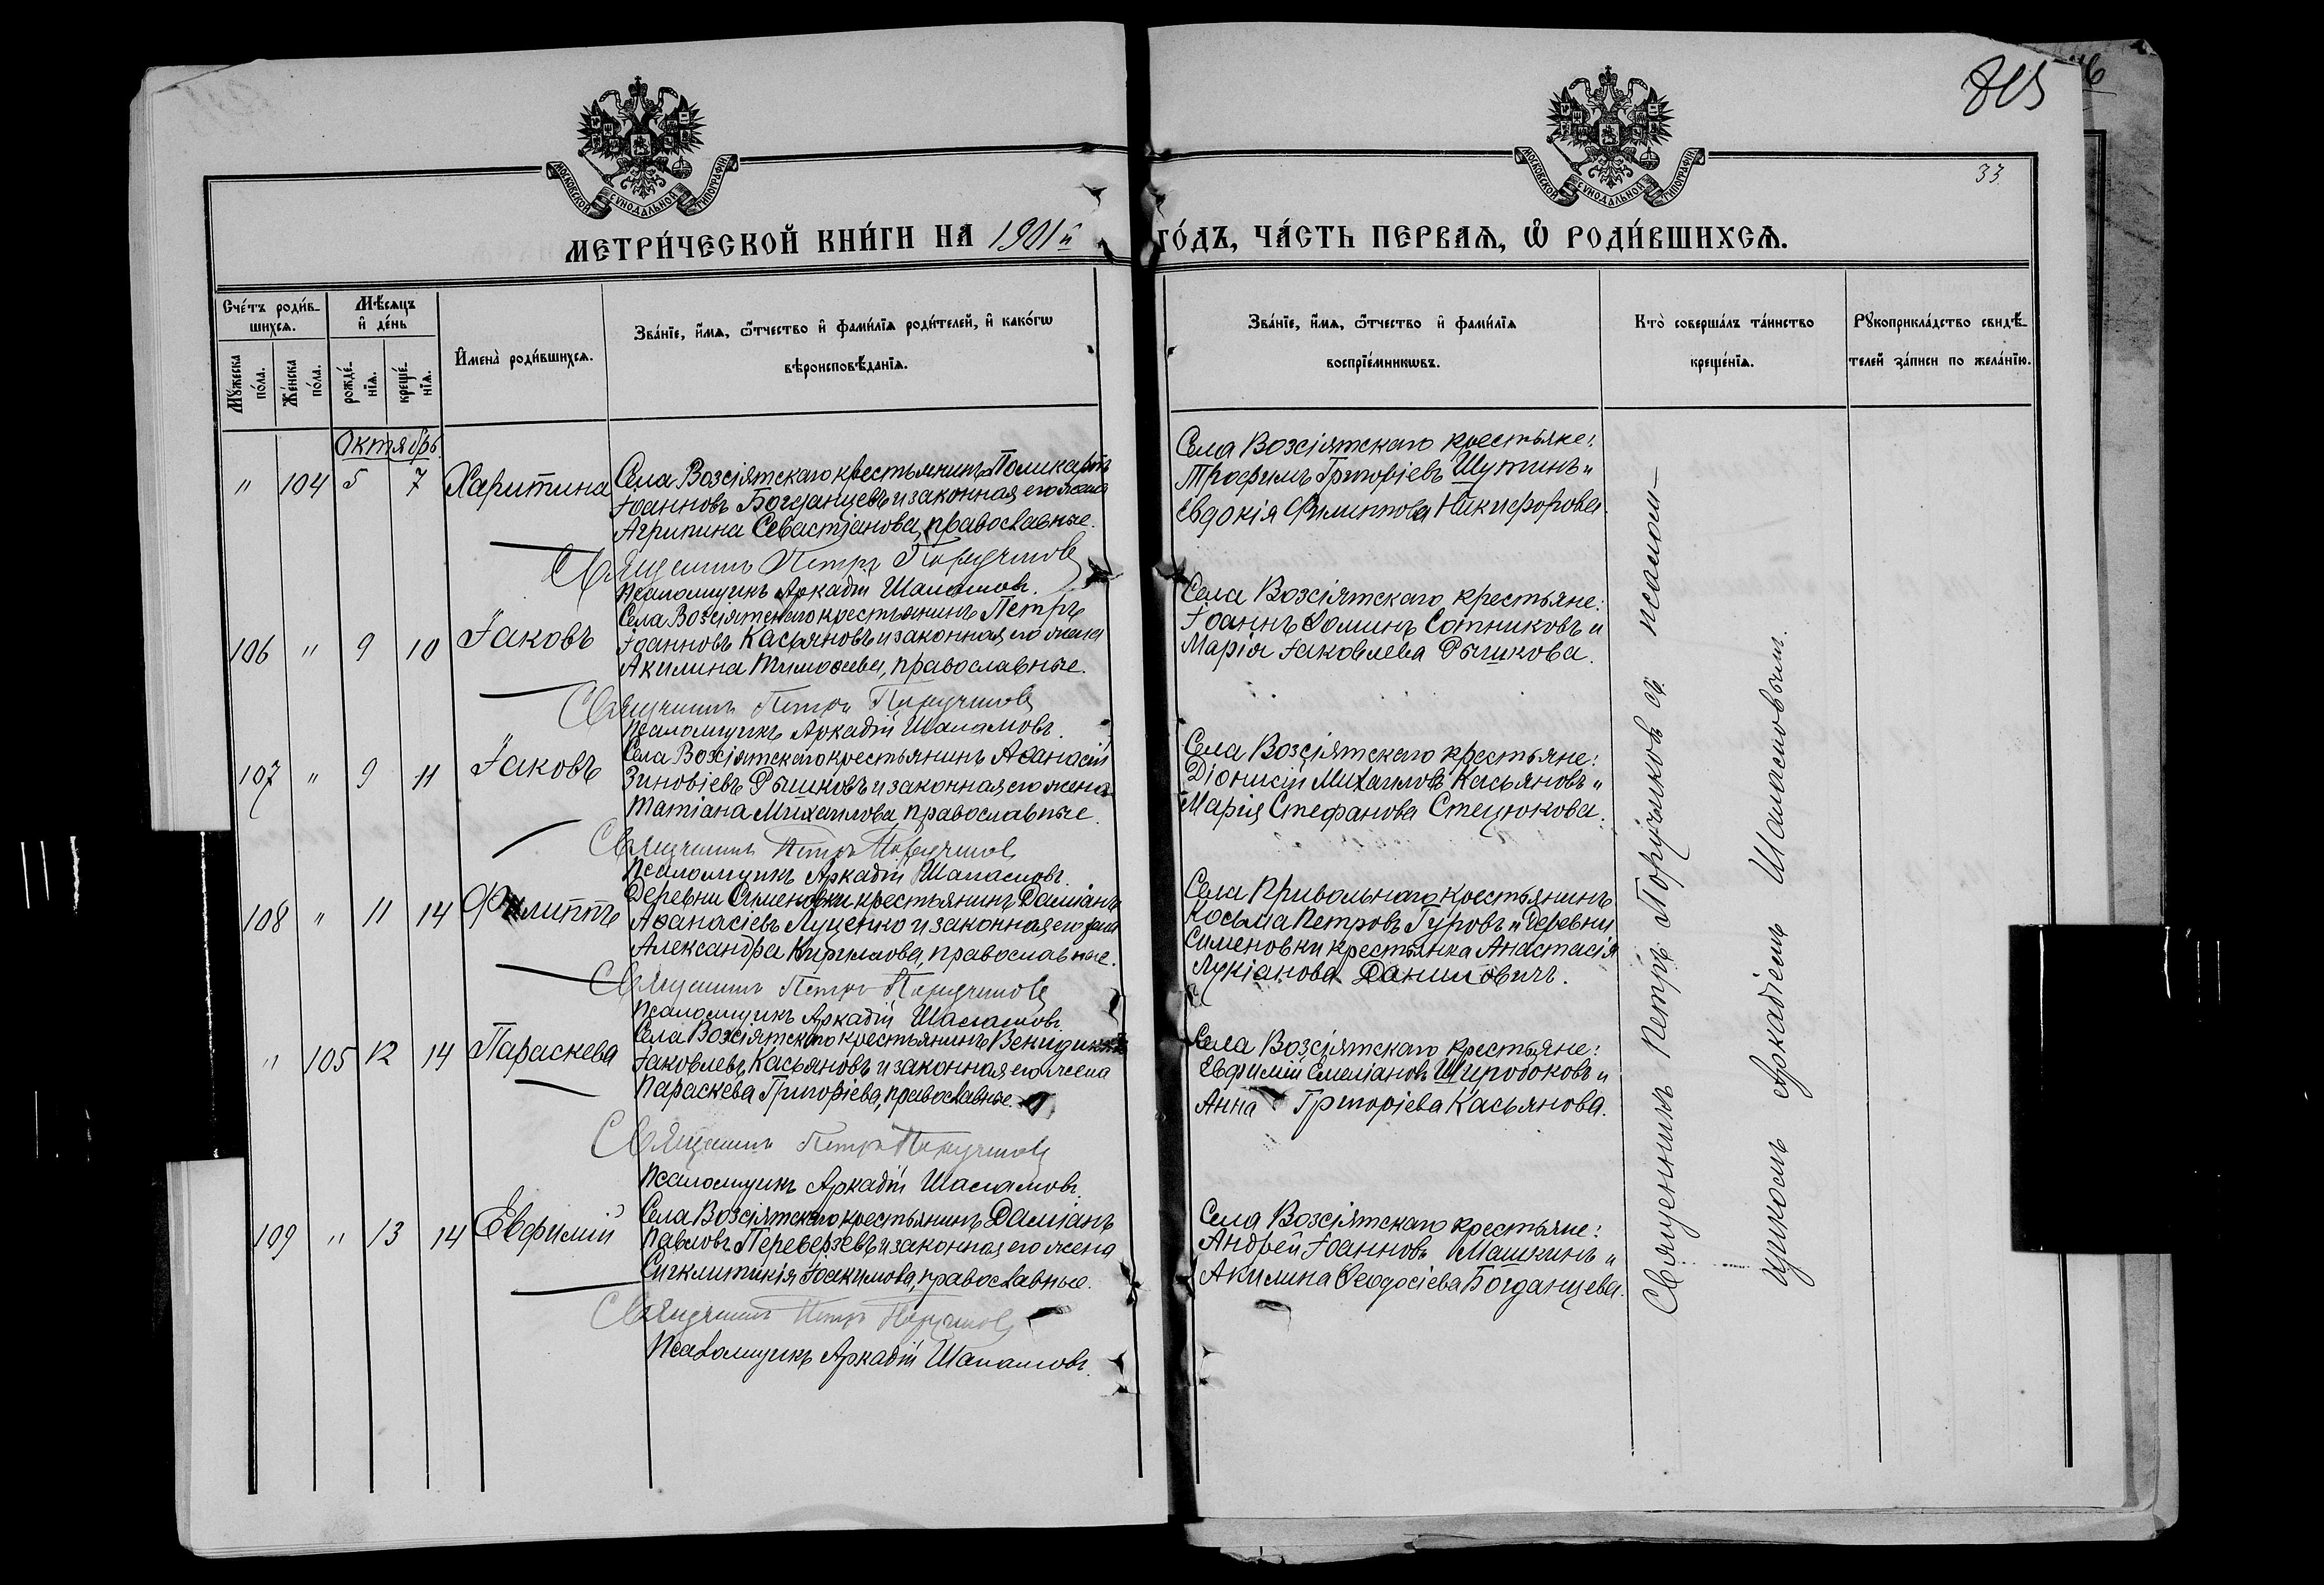 815
33.
МОСКОВСКОЙ СѴНОДАЛЬНОЙ ТИПОГРАФІИ
МОСКОВСКОЙ СѴНОДАЛЬНОЙ ТИПОГРАФІИ
МЕТРИ́ЧЕСКОЙ КНИ́ГИ НА 1901й
ГО́ДЪ, ЧА́СТЬ ПЕРВАѦ, Ѽ РОДИ́ВШИХСѦ.
Сче́тъ роди́в-
шихсѧ.
Мѣ́сѧцъ
и҆ де́нь
Мꙋ́жеска
по́ла.
Же́нска
по́ла.
рожде́-
нїѧ.
креще́-
нїѧ.
И҆мена̀ роди́вшихсѧ.
Зва́нїе, и҆́мѧ, ѻ҆́тчество и҆ фами́лїѧ роди́телей, и҆ како́гѡ
вѣроисповѣ́данїѧ.
Зва́нїе, и҆́мѧ, ѻ҆́тчество и҆ фами́лїѧ
воспрїе́мникѡвъ.
Кто̀ соверша́лъ та́инство
креще́нїѧ.
Рꙋкоприкла́дство свидѣ́-
телей за́писи по жела́нїю.
Октябрь
" 104 5 7 Харитина
Села Возсіятскаго крестьянинъ Поликарпъ
Іоанновъ Богданцевъ и законная его жена
Агрипина Севастіанова, православные.
Священникъ Петръ Поручиковъ
Псаломщикъ Аркадій Шаламовъ.
Села Возсіятскаго крестьяне:
Трофимъ Григоріевъ Шутинъ и
Евдокія Филиппова Никифорова.
106 " 9 10 Іаковъ
Села Возсіятскаго крестьянинъ Петръ
Іоанновъ Касьяновъ и законная его жена
Акилина Тимоѳеева, православные.
Священникъ Петръ Поручиковъ
Псаломщикъ Аркадій Шаламовъ.
Села Возсіятскаго крестьяне:
Іоаннъ Ѳоминъ Сотниковъ и
Марія Іаковлева Рышкова.
107 " 9 11 Іаковъ
Села Возсіятскаго крестьянинъ Аѳанасій
Зиновіевъ Рышковъ и законная его жена
Татіана Михаилова православные.
Священникъ Петръ Поручиковъ
Псаломщикъ Аркадій Шаламовъ.
Села Возсіятскаго крестьяне:
Діонисій Михаиловъ Касьяновъ и
Марія Стефанова Стецюкова.
108 " 11 14 Филиппъ
Деревни Сименовки крестьянинъ Даміанъ
Аѳанасіевъ Луценко и законная его жена
Александра Кириллова, православные.
Священникъ Петръ Поручиковъ
Псаломщикъ Аркадій Шаламовъ.
Села Привольнаго крестьянинъ
Косьма Петровъ Гуровъ и деревни
Сименовки крестьянка Анастасія
Лукіанова Даниловичъ.
" 105 12 14 Параскева
Села Возсіятскаго крестьянинъ
Іаковлевъ Касьяновъ и законная его жена
Параскева Григоріева, православные.
Священникъ Петръ Поручиковъ
Псаломщикъ Аркадій Шаламовъ.
Села Возсіятскаго крестьяне:
Евфимій Емеліановъ Широбоковъ и
Анна Григоріева Касьянова.
109 " 13 14 Евфимій
Села Возсіятскаго крестьянинъ Даміанъ
Павловъ Переверзевъ и законная его жена
Сигклитикія Іоакимова, православные.
Священникъ Петръ Поручиковъ
Псаломщикъ Аркадій Шаламовъ.
Села Возсіятскаго крестьяне:
Андрей Іоанновъ Машкинъ и
Акилина Ѳеодосіева Богданцева.
Священникъ Петръ Поручиковъ съ псалом-
щикомъ Аркадіемъ Шаламовымъ.